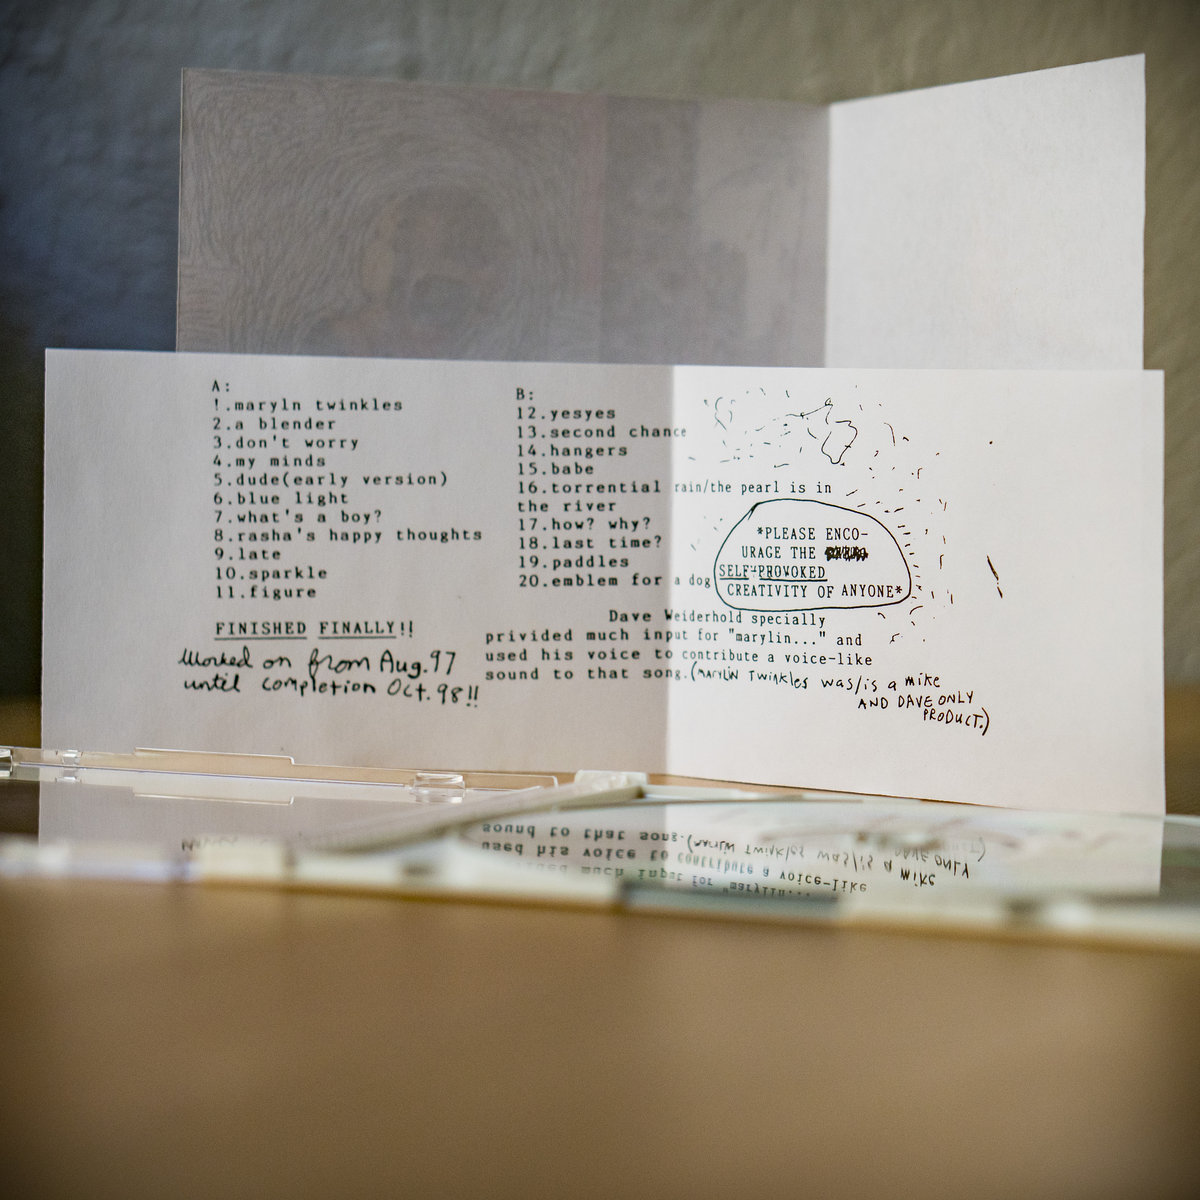 A:
!.maryln twinkles
2.a blender
3.don't worry
4.my minds
5.dude(early version)
6.blue light
7.what's a boy?
8.rasha's happy thoughts
9.late
10.sparkle
11.figure
FINISHED FINALLY!!
Worked on from Aug.97
until completion Oct.98!!
B:
12.yesyes
13.second chance
14.hangers
15.babe
16.torrential rain/the pearl is in
the river
17.how? why?
18.last time?
19.paddles
20.emblem for a dog
*PLEASE ENCO-
URAGE THE
SELF-PROVOKED
CREATIVITY OF ANYONE*
Dave Weiderhold specially
privided much input for "marylin..." and
used his voice to contribute a voice-like
sound to that song.(MARYLIN TWINKLES was/is a mike
AND DAVE ONLY
PRODUCT.)
sound to that song.(MARYLIN TWINKLES was/is a mike
used his voice to contribute a voice-like
much input for "marylin...